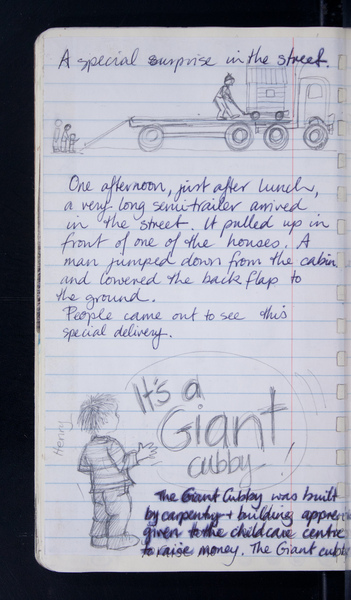 A special surprise in the street.
One afternoon, just after lunch,
a very long semi-trailer arrived
in the street. It pulled up in
front of one of the houses. A
man jumped down from the cabin
and lowered the back flap to
the ground.
People came out to see this
special delivery.
It's a
Giant
cubby!
Henry
The Giant Cubby was built
by carpentry + building appren
given to the childcare centre
to raise money. The Giant cubb